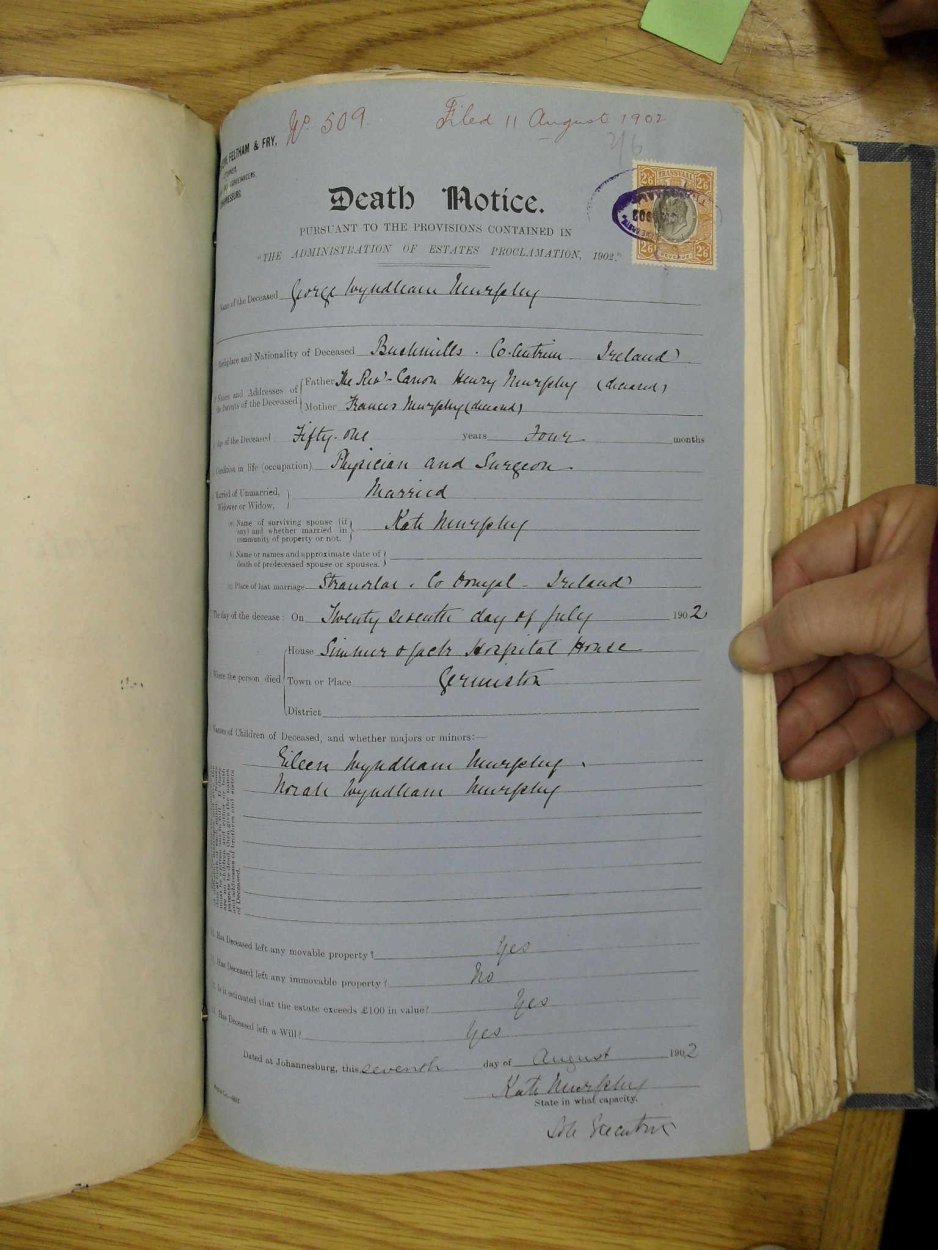 No 509. Filed 11 August 1902
2/6
FELTHAM & FRY,
TRANSVAAL
2/6 2/6
2/6 2/6
REVENUE
Death Notice.
PURSUANT TO THE PROVISIONS CONTAINED IN
"THE ADMINISTRATION OF ESTATES PROCLAMATION, 1902."
Name of the Deceased George Wyndham Murphy
Birthplace and Nationality of Deceased Bushmills. Co. Antrim Ireland
Names and Addresses of the Parents of the Deceased
Father The Revd. Canon Henry Murphy (deceased)
Mother Frances Murphy (deceased)
Age of the Deceased Fifty-one years Four months
Condition in life (occupation) Physician and Surgeon.
Married or Unmarried,
Widower or Widow, Married
(a) Name of surviving spouse (if
any) and whether married in
community of property or not. Kate Murphy
(b) Name or names and approximate date of
death of predeceased spouse or spouses.
(c) Place of last marriage Stranorlar. Co Donegal - Ireland
The day of the decease: On Twenty seventh day of July 1902
Where the person died
House Simmer & Jack Hospital House
Town or Place Germiston
District
Names of Children of Deceased, and whether majors or minors:—
Eileen Wyndham Murphy.
Norah Wyndham Murphy
and addresses of brothers and sisters
of Deceased.
Has Deceased left any movable property? Yes
Has Deceased left any immovable property? No
Is it estimated that the estate exceeds £100 in value? Yes
Has Deceased left a Will? Yes
Dated at Johannesburg, this seventh day of August 1902
Kate Murphy
State in what capacity.
Sole Executrix